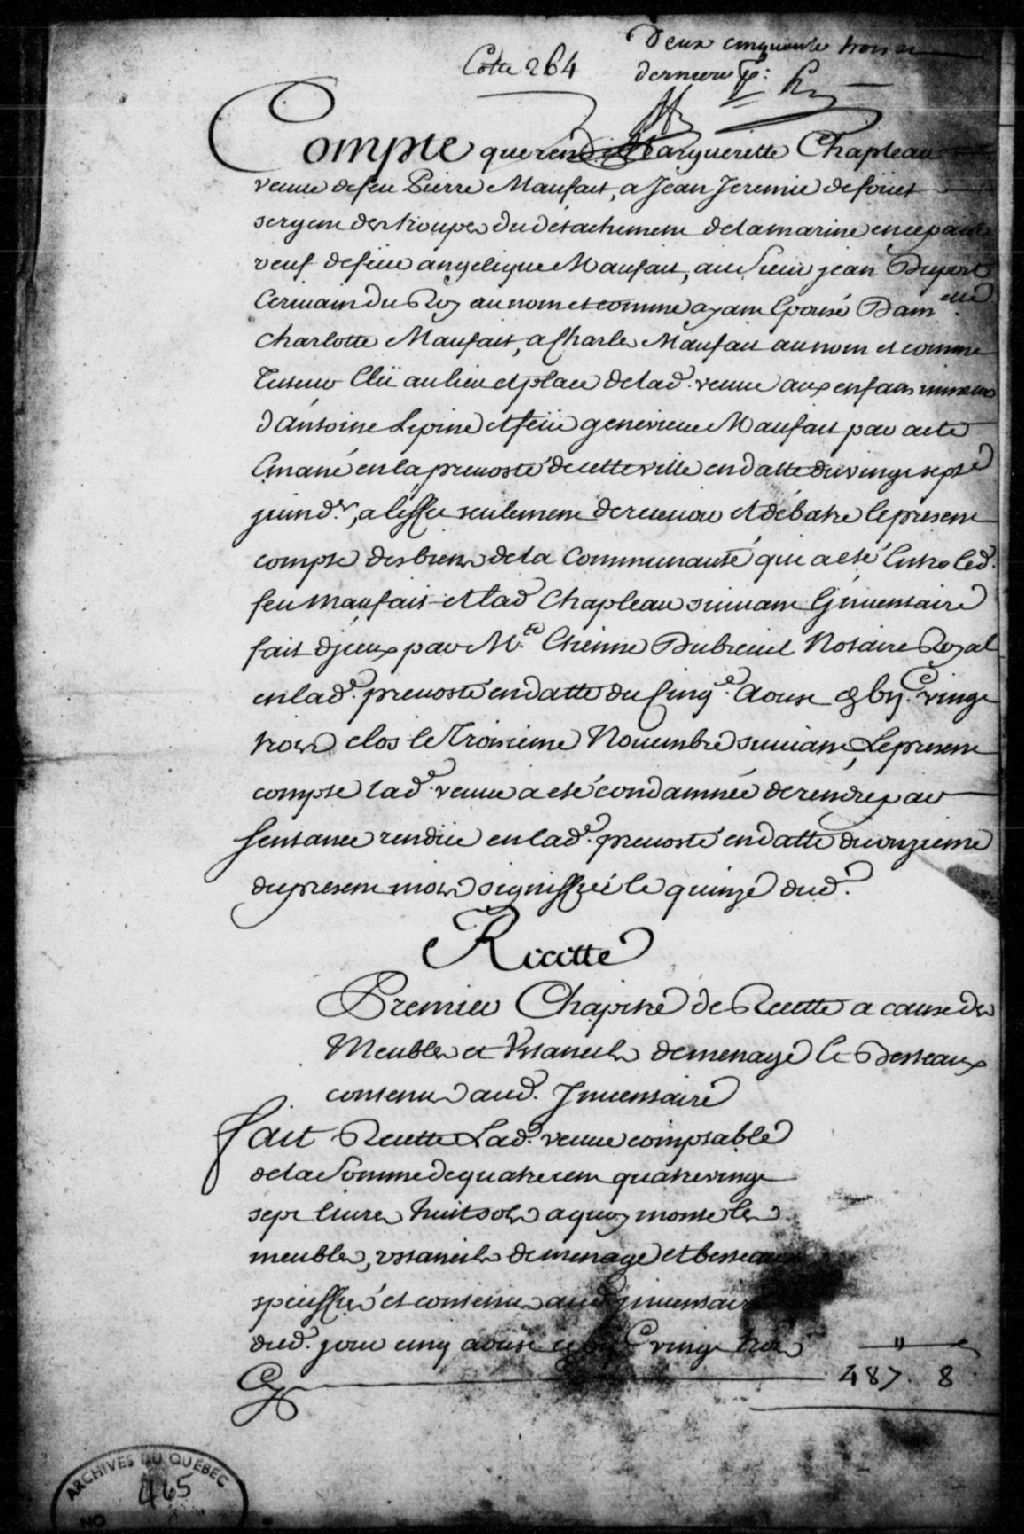 Deux cinquante trois
Cotte 264 derniere p:
Compte que rend Margueritte Chapleau
veuue de feu Pierre Maufait, a Jean Jeremie defoües
sergent des troupes du détachement de la marine en ce païs
veuf de feüe angelique Maufait, au Sieur jean Duport
Ecriuain du Roy au nom et comme ayant Epousé Dam.elle
Charlotte Maufait, a Charle Maufait au nom et comme
Tuteur Elû au lieu et place de lad. veuue aux enfans mineurs
d'antoine Lepine et feüe geneuieue Maufait par acte
Emané en la preuosté de cette ville en datte du vingt sept
juin d.r, a l'effet seulement de receuoir et débatre le present
compte des biens de la Communauté qui a esté Entre led.
feu Maufait et lad. Chapleau suiuant L'jnuentaire
fait d'jceux par M.e Etienne Dubreuil Notaire Royal
en lad. preuosté en datte du Cinq.e Aoust vingt
trois clos le Troisieme Nouembre suiuant, Le present
compte lad. veuue a eté condamnée de rendre par
Sentance rendüe en lad. preuosté en datte du onzieme
du present mois signiffiée le quinze dud.
Recette
Premier Chapitre de Recette a cause des
Meubles et Vstancils de menage et Bestiaux
contenus aud. Jnuentaire
fait Recette Lad. veuue comptable
de la Somme de quatre cent quatre vingt
sept liures huit sols a quoy monte les
meubles, vstancils de menage et bestiaux
speciffiés et contenus aud. jnuentaire
dud. jour cinq aoust vingt trois
Cy 487 8
ARCHIVES DU QUEBEC
465
NO